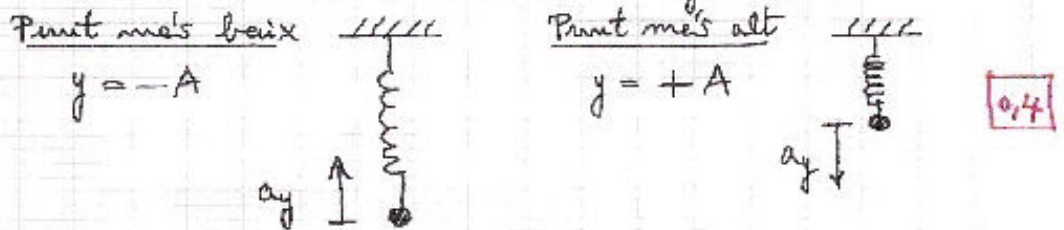 Punt més baix
y = - A
ay
Punt més alt
y = + A
ay
0,4